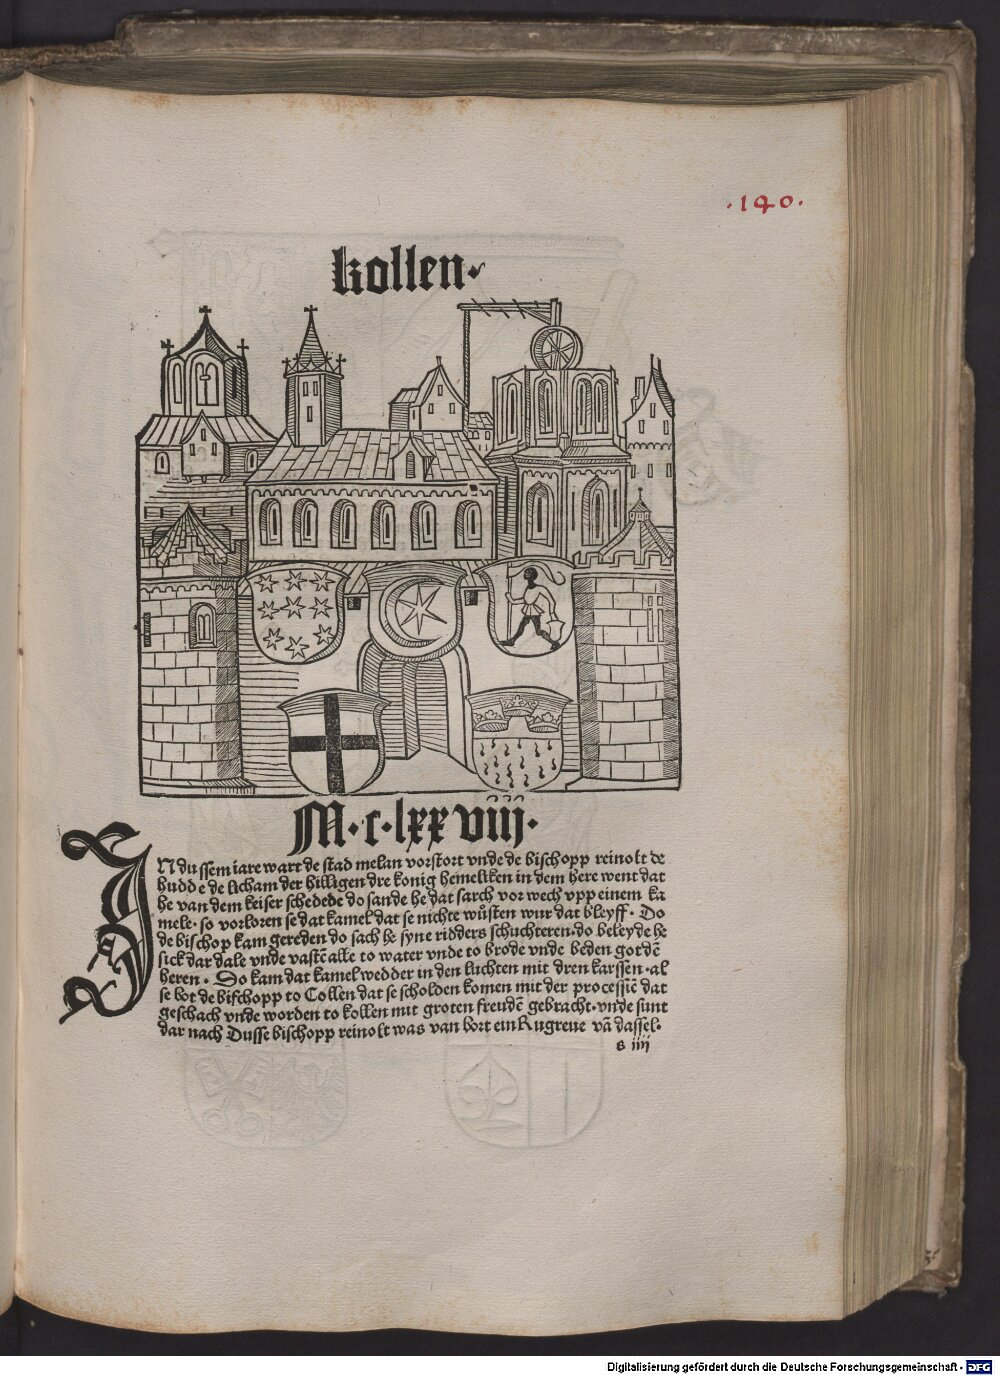 ·140·
kollen·
M·c·lxxviij·
IN dussem iare wart de stad melan vorstort vnde de bischopp reinolt de
budde de licham der hilligen dre konig hemeliken in dem here went dat
he van dem keiser schedede do sande he dat sarch vor wech vpp einem ka
mele· so vorloren se dat kamel dat se nichte wůsten wur dat bleyff· Do
de bischop kam gereden do sach he syne ridders schuchteren·do beleyde he
sick dar dale vnde vastē alle to water vnde to brode vnde beden got dē
heren· So kam dat kamel wedder in den luchten mit dren karssen·al
se bot de bischopp to Collen dat se scholden komen mit der processiē dat
geschach vnde worden to kollen mit groten freudē gebracht·vnde sunt
dar nach Dusse bischopp reinolt was van bort ein Rugreue vā dassel·
s iiij
Digitalisierung gefördert durch die Deutsche Forschungsgemeinschaft - DFG